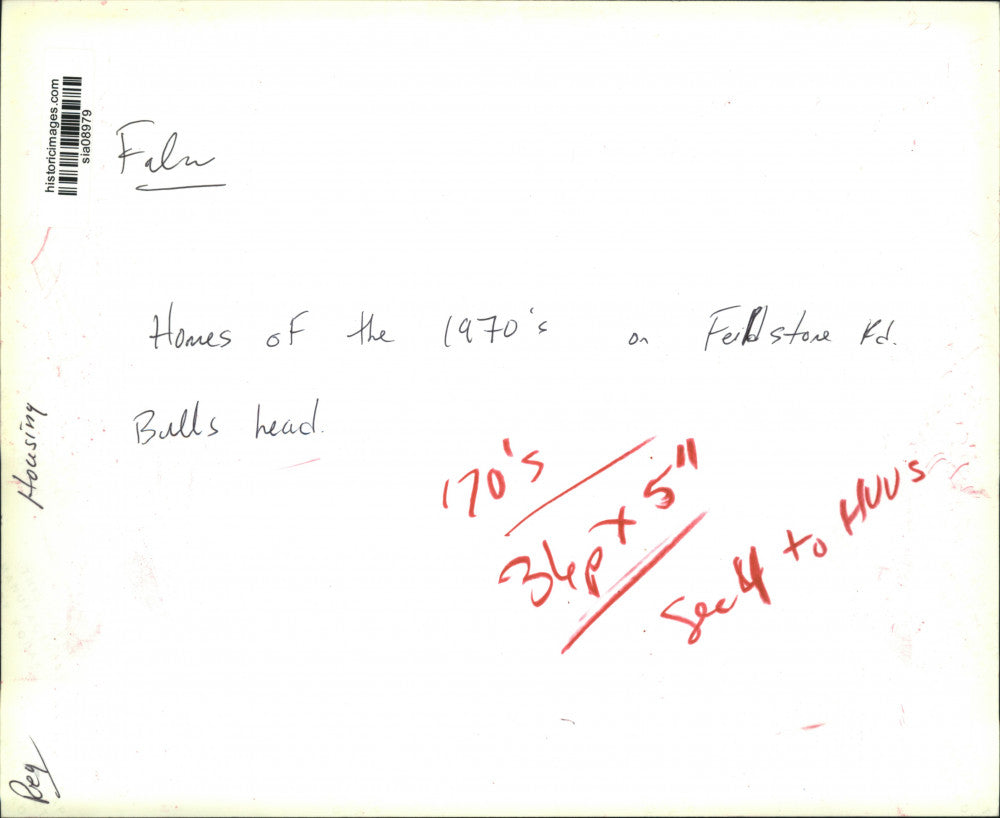 historicimages.com
sia08979
Homes of the 1970's on Feildstone Rd.
Bulls head.
Housing
'70's
36p x 5"
to
Reg